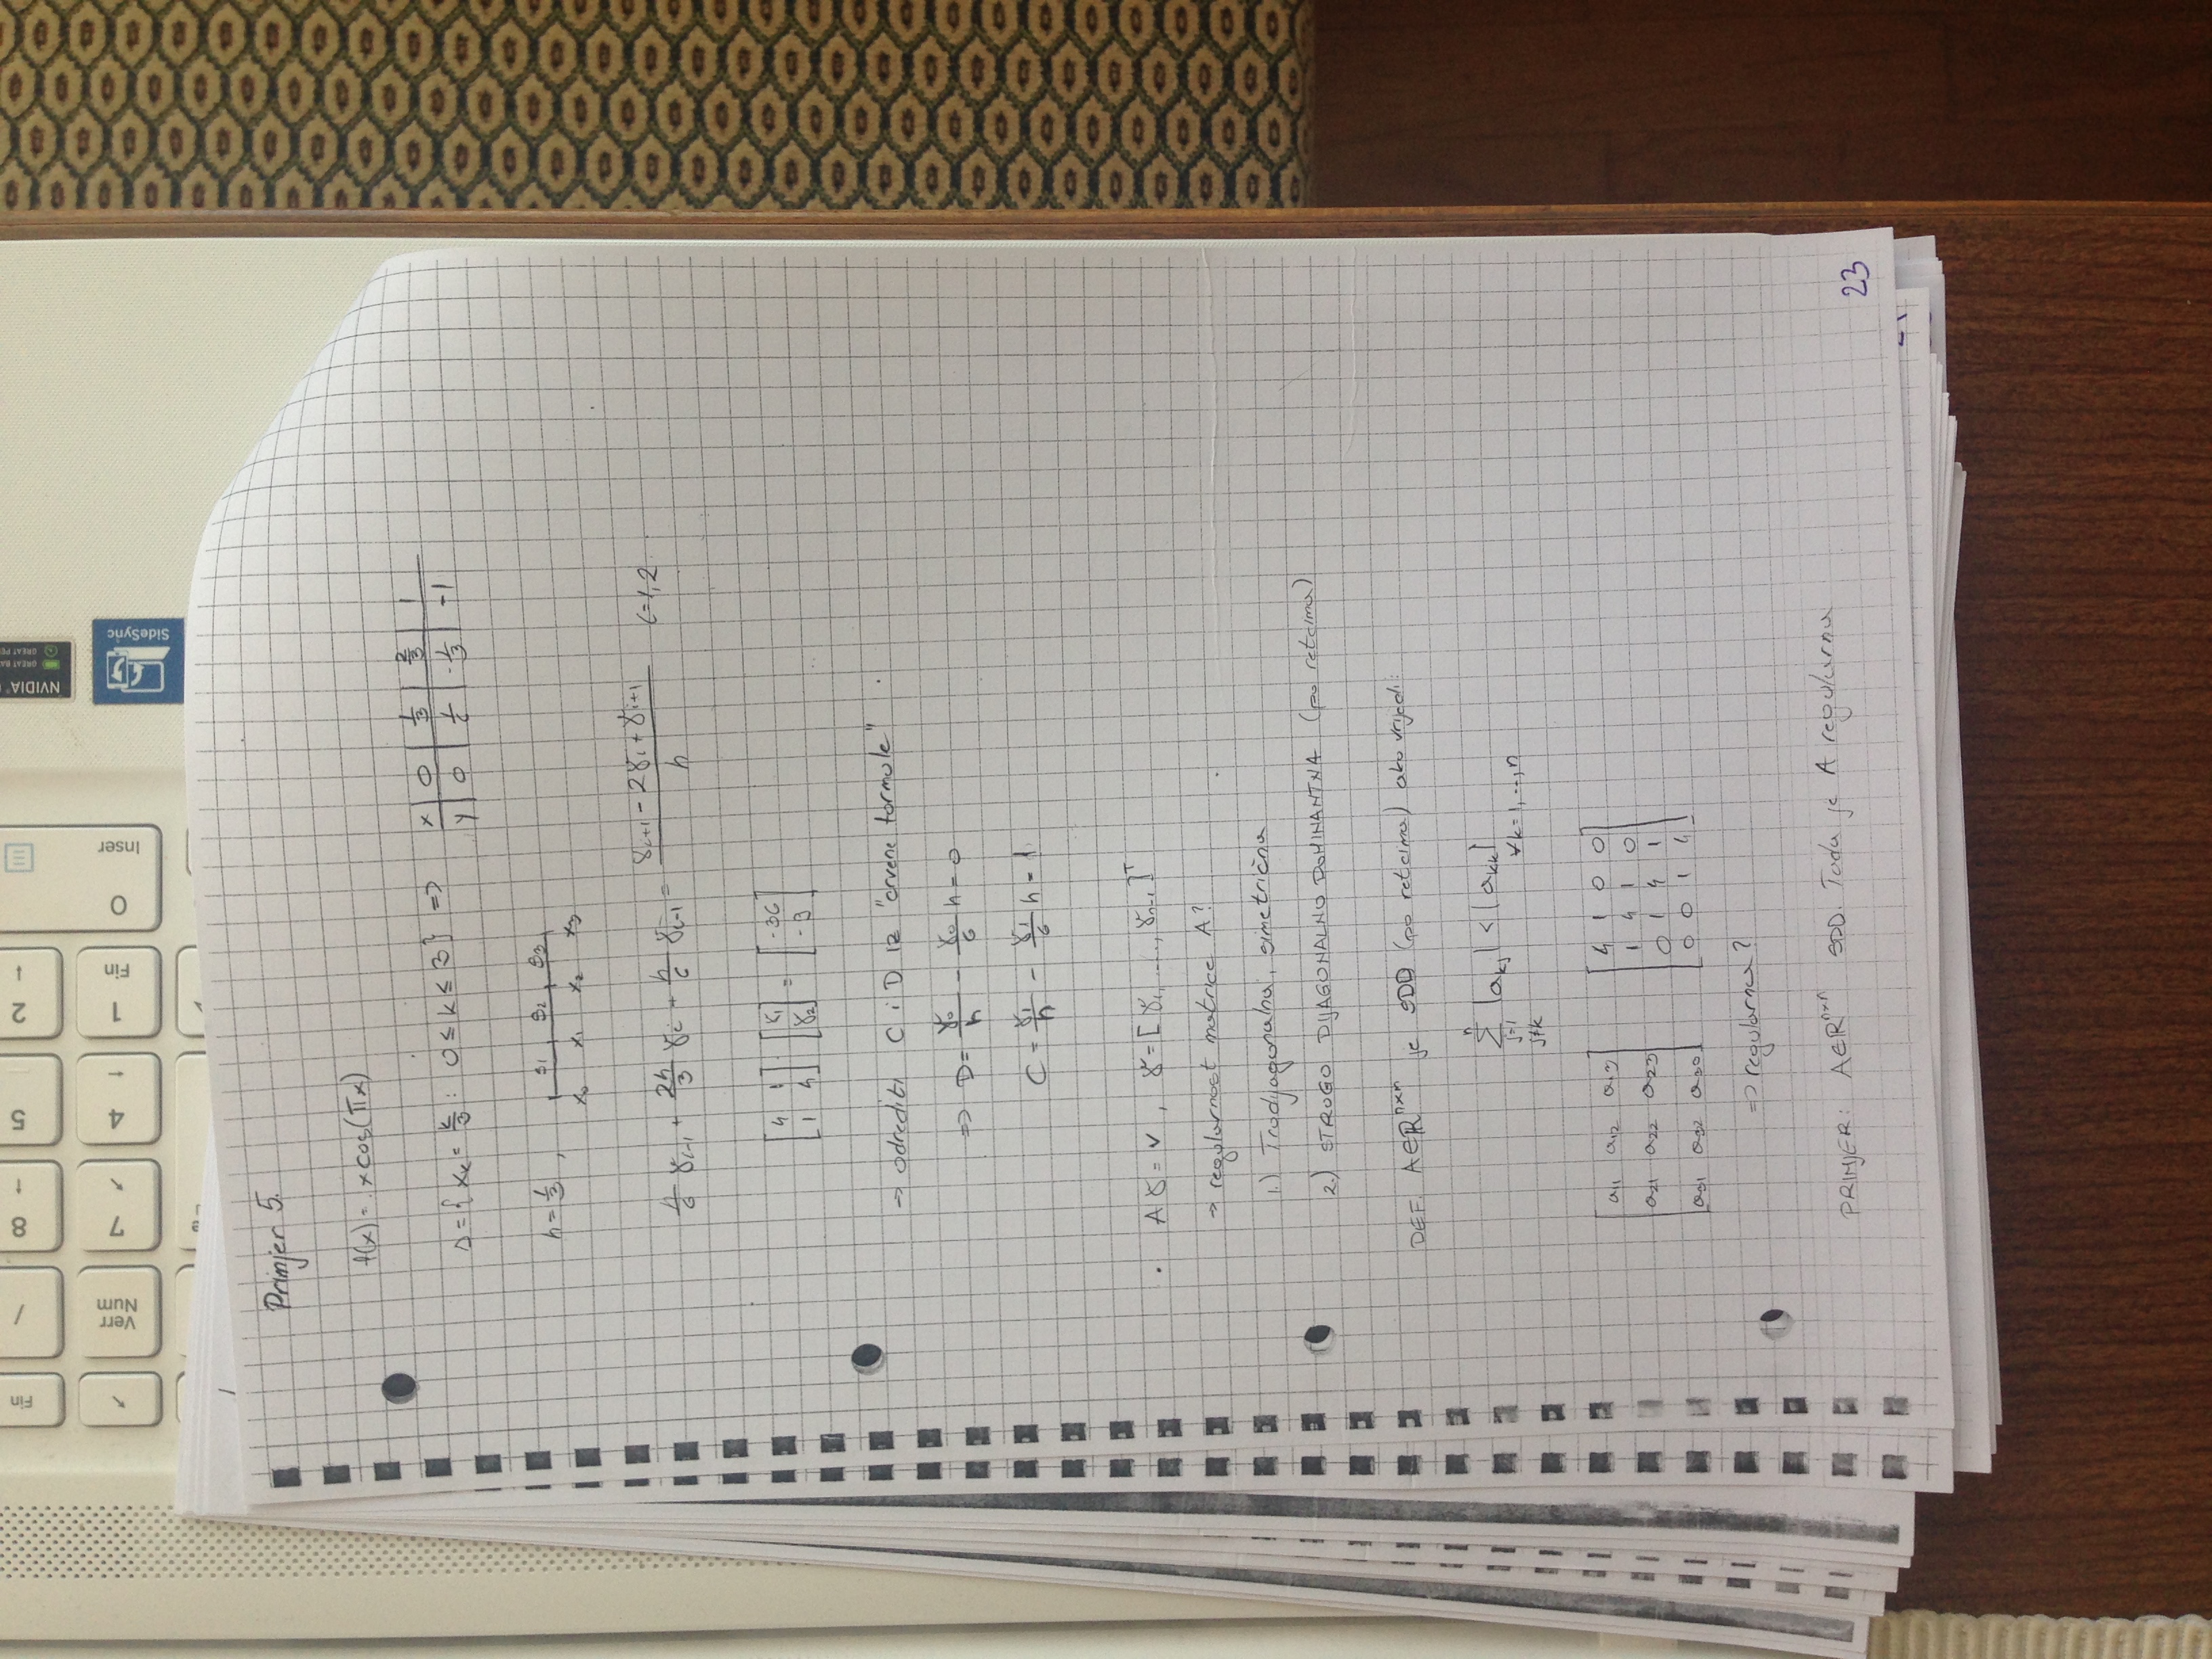 Fin
/
8 ↑
5
2 ↓
↖
Verr Num
7 ↖
4 ←
1 Fin
0 Inser
NVIDIA
SideSync
Primjer 5.
f(x) = x cos(πx)
Δ = { x_k = k/3 : 0 ≤ k ≤ 3 } => x | 0 | 1/3 | 2/3 | 1
y | 0 | 1/6 | -1/3 | -1
h = 1/3 , S1 S2 S3
x0 x1 x2 x3
h/6 γ_{i-1} + 2h/3 γ_i + h/6 γ_{i-1} = (γ_{i+1} - 2γ_i + γ_{i+1}) / h i=1,2
[4 1; 1 4] [γ1; γ2] = [-36; -3]
→ odrediti C i D iz "crvene formule"
=> D = γ0/h - γ0/6 h = 0
C = γ1/h - γ1/6 h = 1
· Aγ = v, γ = [γ1, ...., γ_{n-1}]^T
→ regularnost matrice A?
1.) Trodijagonalna, simetrična
2.) STROGO DIJAGONALNO DOMINANTNA (po retcima)
DEF. A∈R^{n×n} je SDD (po retcima) ako vrijedi:
∑_{j=1, j≠k}^{n} |a_kj| < |a_kk| ∀k=1,...,n
[a11 a12 a13; a21 a22 a23; a31 a32 a33] [4 1 0 0; 1 4 1 0; 0 1 4 1; 0 0 1 4]
=> regularna?
PRIMJER: A∈R^{n×n} SDD. Tada je A regularna
23